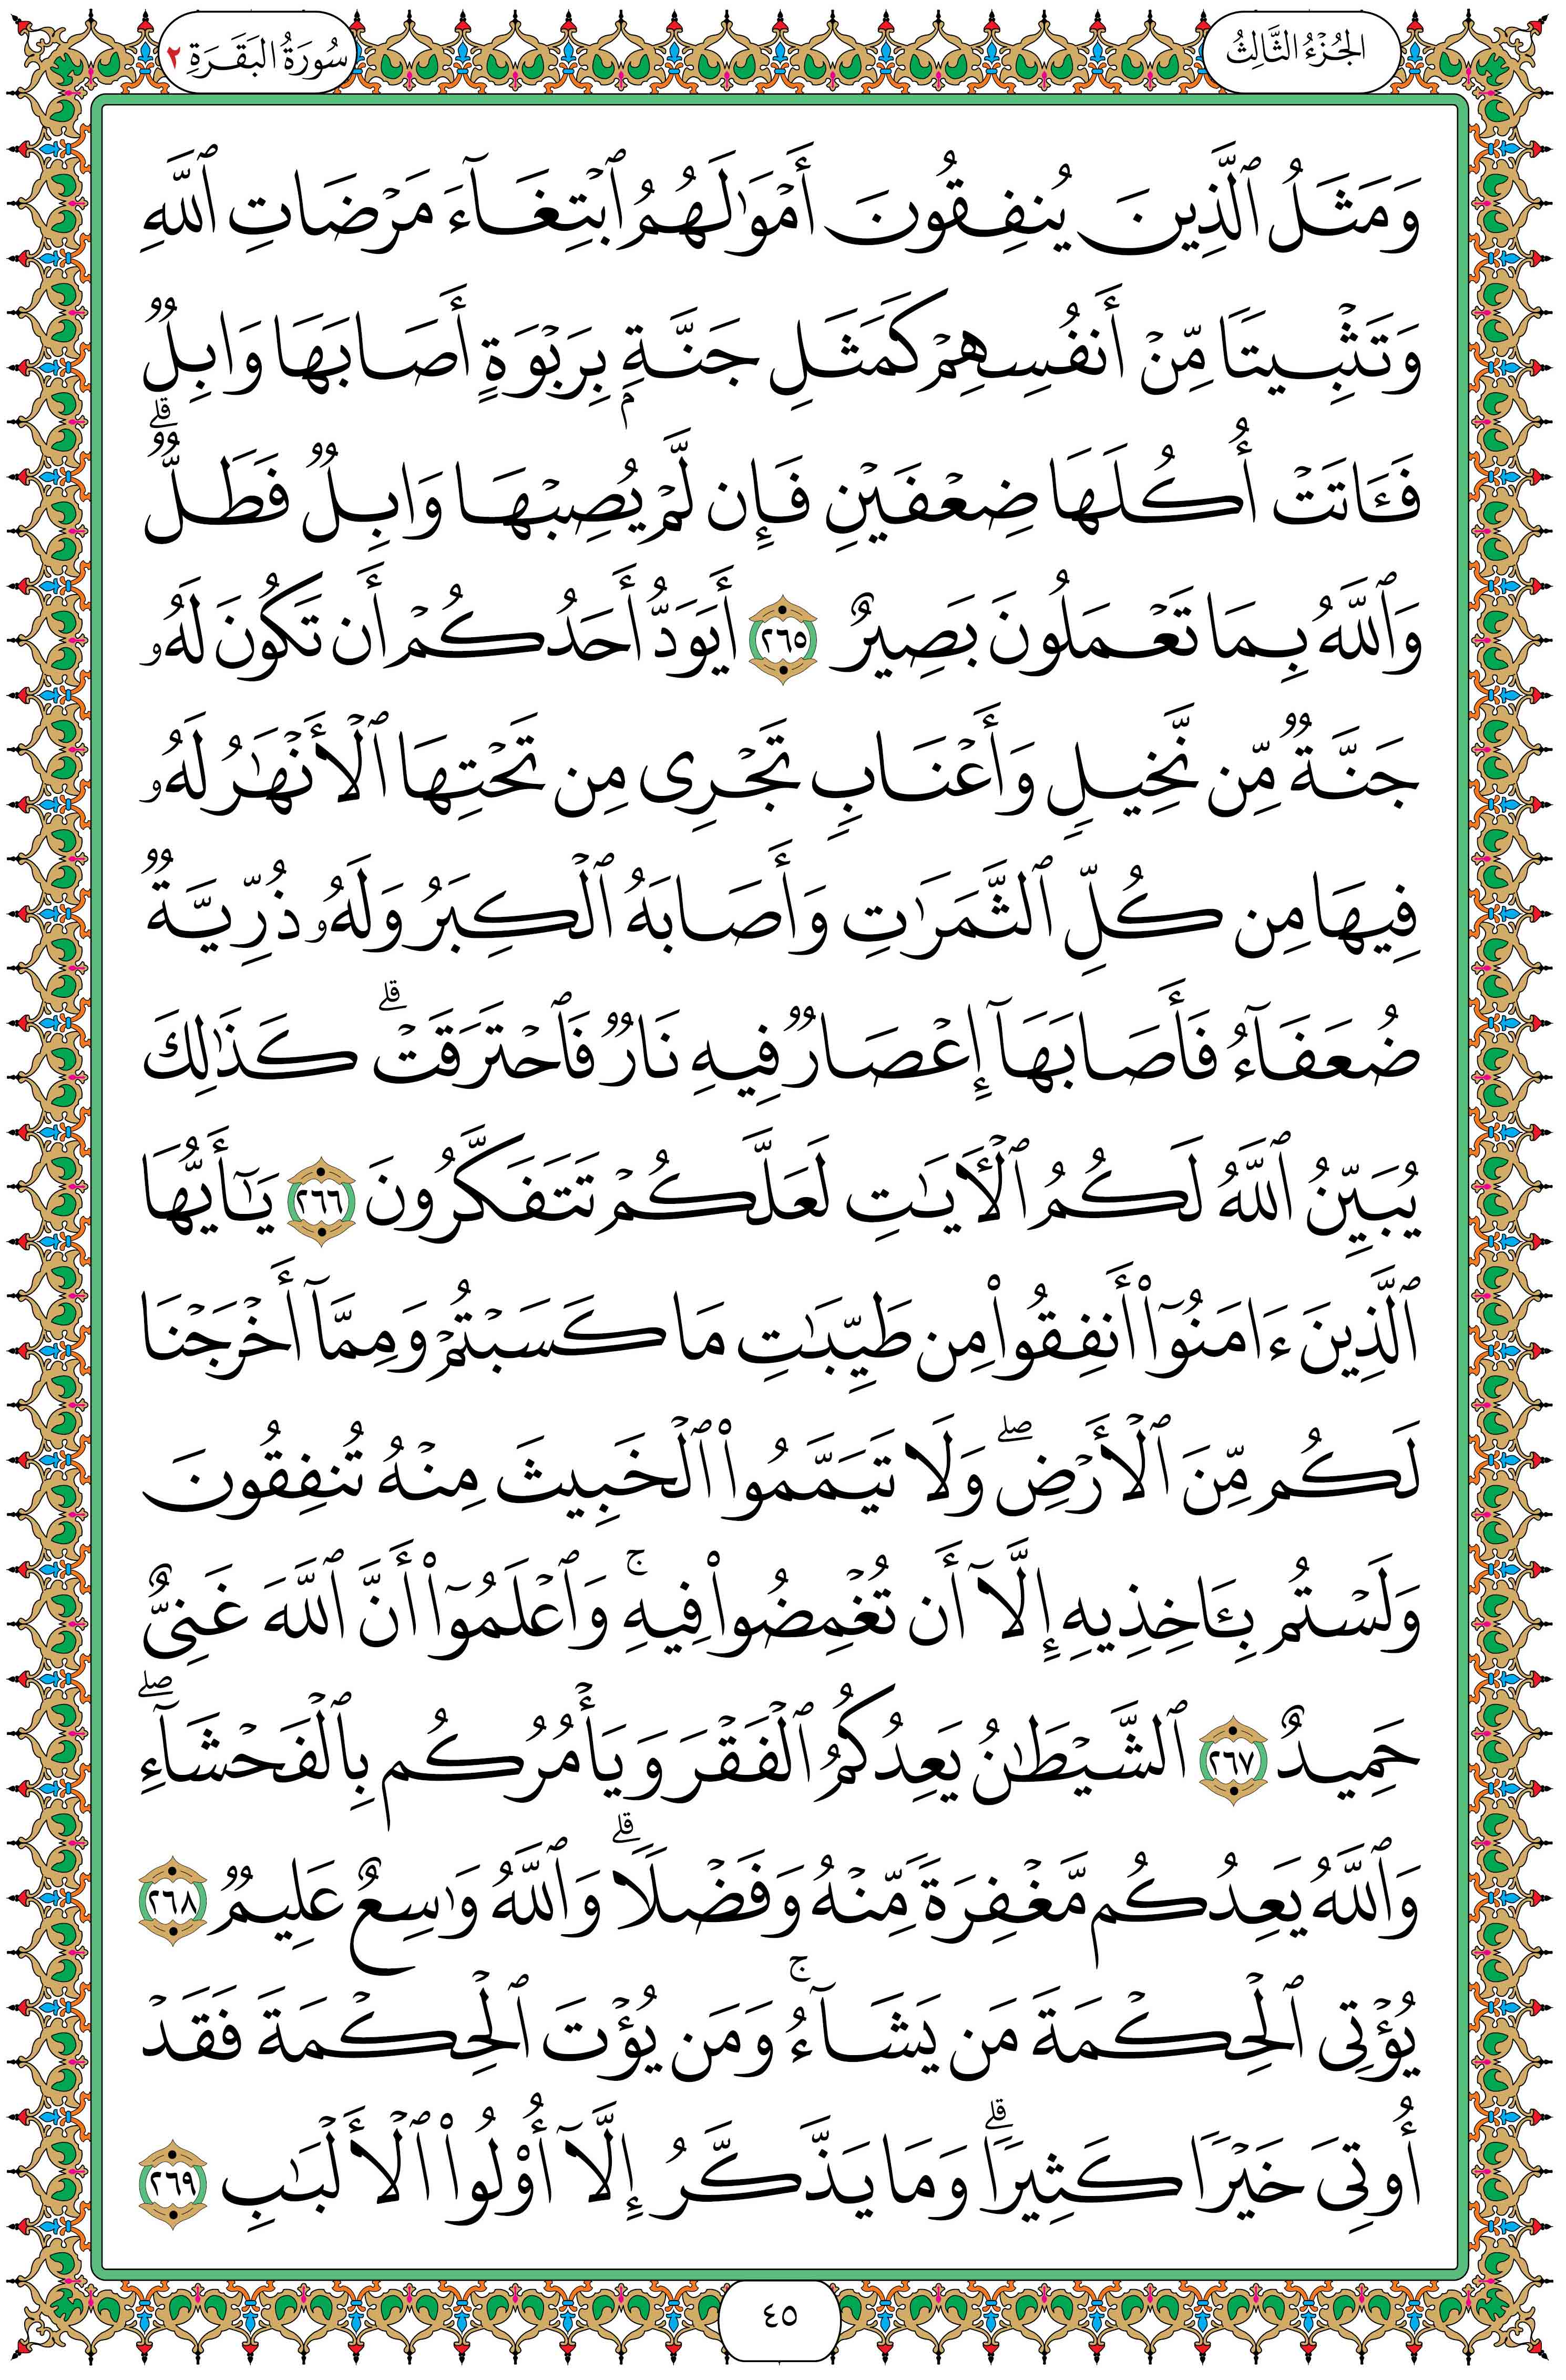 الجُزْءُ الثَّالِثُ
سُورَةُ البَقَرَةِ ٢
وَمَثَلُ ٱلَّذِينَ يُنفِقُونَ أَمۡوَٰلَهُمُ ٱبۡتِغَآءَ مَرۡضَاتِ ٱللَّهِ
وَتَثۡبِيتٗا مِّنۡ أَنفُسِهِمۡ كَمَثَلِ جَنَّةِۭ بِرَبۡوَةٍ أَصَابَهَا وَابِلٞ
فَـَٔاتَتۡ أُكُلَهَا ضِعۡفَيۡنِ فَإِن لَّمۡ يُصِبۡهَا وَابِلٞ فَطَلّٞۗ
وَٱللَّهُ بِمَا تَعۡمَلُونَ بَصِيرٌ ٢٦٥ أَيَوَدُّ أَحَدُكُمۡ أَن تَكُونَ لَهُۥ
جَنَّةٞ مِّن نَّخِيلٖ وَأَعۡنَابٖ تَجۡرِي مِن تَحۡتِهَا ٱلۡأَنۡهَٰرُ لَهُۥ
فِيهَا مِن كُلِّ ٱلثَّمَرَٰتِ وَأَصَابَهُ ٱلۡكِبَرُ وَلَهُۥ ذُرِّيَّةٞ
ضُعَفَآءُ فَأَصَابَهَآ إِعۡصَارٞ فِيهِ نَارٞ فَٱحۡتَرَقَتۡۗ كَذَٰلِكَ
يُبَيِّنُ ٱللَّهُ لَكُمُ ٱلۡأٓيَٰتِ لَعَلَّكُمۡ تَتَفَكَّرُونَ ٢٦٦ يَٰٓأَيُّهَا
ٱلَّذِينَ ءَامَنُوٓاْ أَنفِقُواْ مِن طَيِّبَٰتِ مَا كَسَبۡتُمۡ وَمِمَّآ أَخۡرَجۡنَا
لَكُم مِّنَ ٱلۡأَرۡضِۖ وَلَا تَيَمَّمُواْ ٱلۡخَبِيثَ مِنۡهُ تُنفِقُونَ
وَلَسۡتُم بِـَٔاخِذِيهِ إِلَّآ أَن تُغۡمِضُواْ فِيهِۚ وَٱعۡلَمُوٓاْ أَنَّ ٱللَّهَ غَنِيٌّ
حَمِيدٌ ٢٦٧ ٱلشَّيۡطَٰنُ يَعِدُكُمُ ٱلۡفَقۡرَ وَيَأۡمُرُكُم بِٱلۡفَحۡشَآءِۖ
وَٱللَّهُ يَعِدُكُم مَّغۡفِرَةٗ مِّنۡهُ وَفَضۡلٗاۗ وَٱللَّهُ وَٰسِعٌ عَلِيمٞ ٢٦٨
يُؤۡتِي ٱلۡحِكۡمَةَ مَن يَشَآءُۚ وَمَن يُؤۡتَ ٱلۡحِكۡمَةَ فَقَدۡ
أُوتِيَ خَيۡرٗا كَثِيرٗاۗ وَمَا يَذَّكَّرُ إِلَّآ أُوْلُواْ ٱلۡأَلۡبَٰبِ ٢٦٩
٤٥